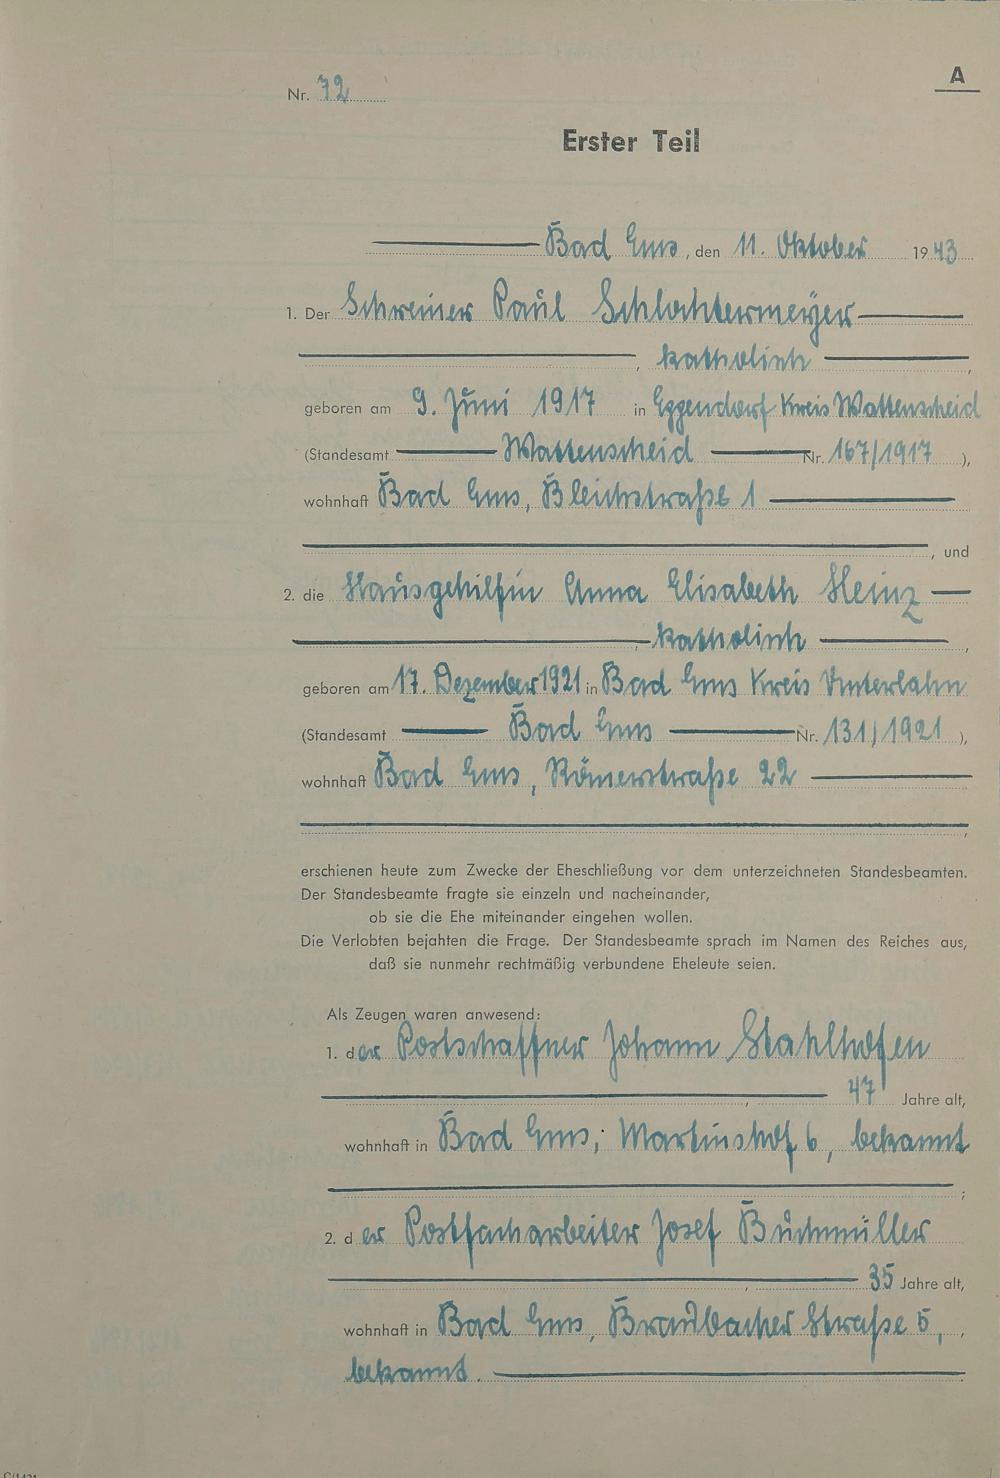 A
Nr. 72
Erster Teil
Bad Ems, den 11. Oktober 1943
1. Der Schreiner Paul Schlochtermeyer
, katholisch ,
geboren am 9. Juni 1917 in Eggendorf Kreis Wattenscheid
(Standesamt Wattenscheid Nr. 167/1917 ),
wohnhaft Bad Ems, Bleichstraße 1
, und
2. die Hausgehilfin Anna Elisabeth Heinz
, katholisch ,
geboren am 17. Dezember 1921 in Bad Ems Kreis Unterlahn
(Standesamt Bad Ems Nr. 131/1921 ),
wohnhaft Bad Ems, Römerstraße 22
,
erschienen heute zum Zwecke der Eheschließung vor dem unterzeichneten Standesbeamten.
Der Standesbeamte fragte sie einzeln und nacheinander,
ob sie die Ehe miteinander eingehen wollen.
Die Verlobten bejahten die Frage. Der Standesbeamte sprach im Namen des Reiches aus,
daß sie nunmehr rechtmäßig verbundene Eheleute seien.
Als Zeugen waren anwesend:
1. der Postschaffner Johann Stahlhofen
, 47 Jahre alt,
wohnhaft in Bad Ems, Martinshof 6, bekannt
;
2. der Postfacharbeiter Josef Buchmüller
, 35 Jahre alt,
wohnhaft in Bad Ems, Braubacher Straße 5,
bekannt.